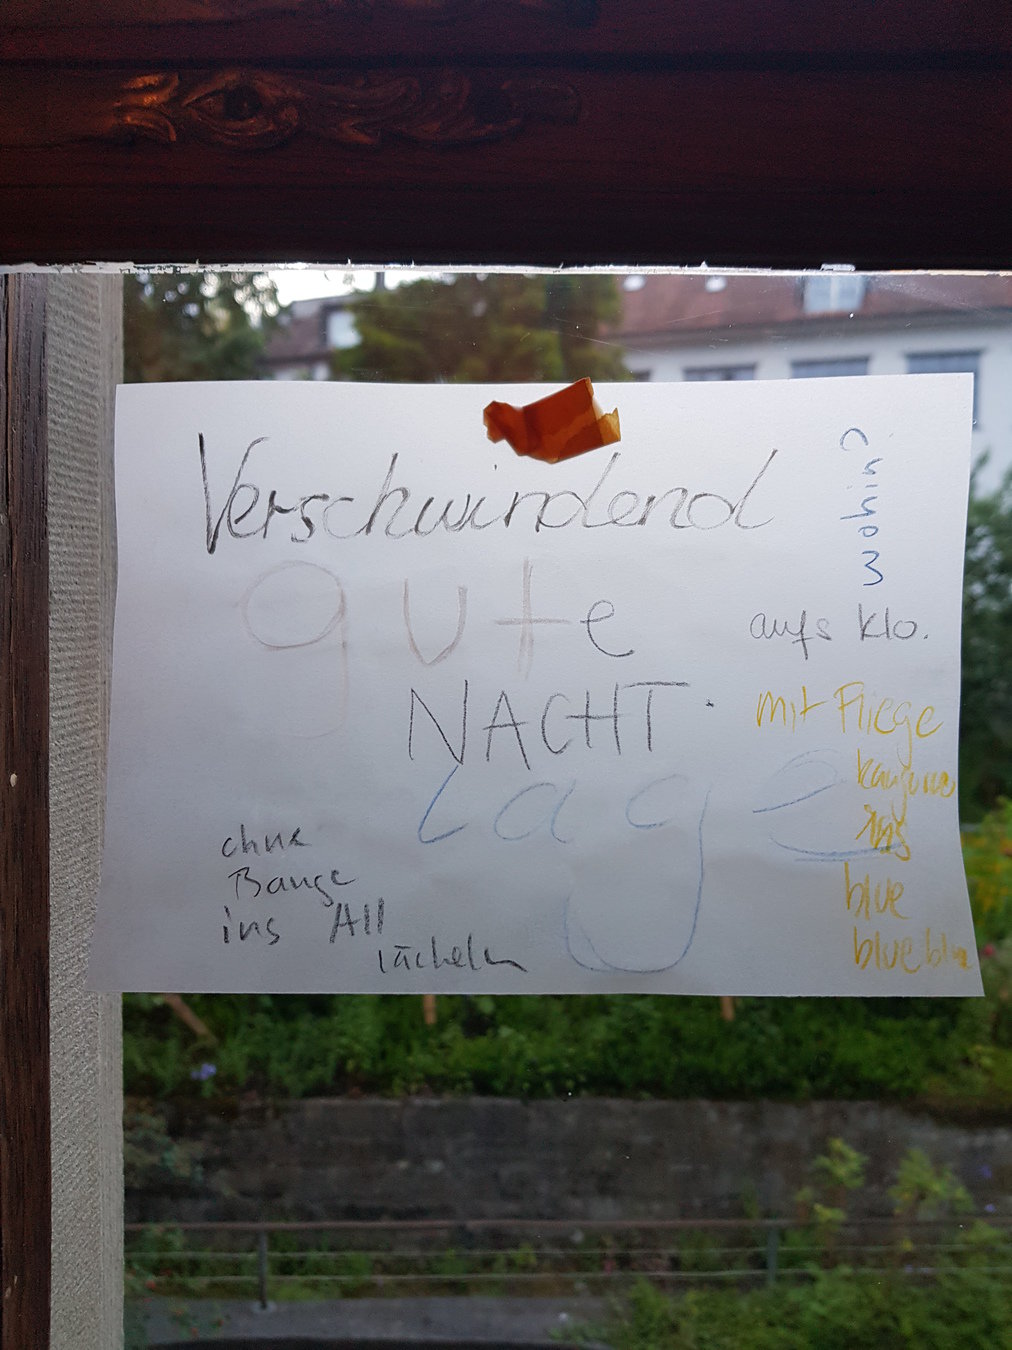 Verschwindend
gute
NACHT.
Lage
ohne
Bange
ins All
lächeln
wohin?
aufs Klo.
mit Fliege
ins
blue
blueblue